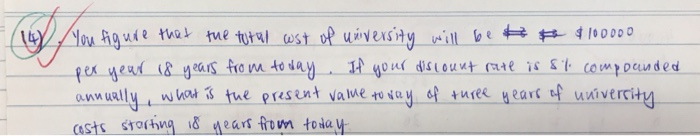 (4). You figure that the total cost of university will be $100000
per year 18 years from today. If your discount rate is 8% compounded
annually, what is the present value today of three years of university
costs starting 18 years from today